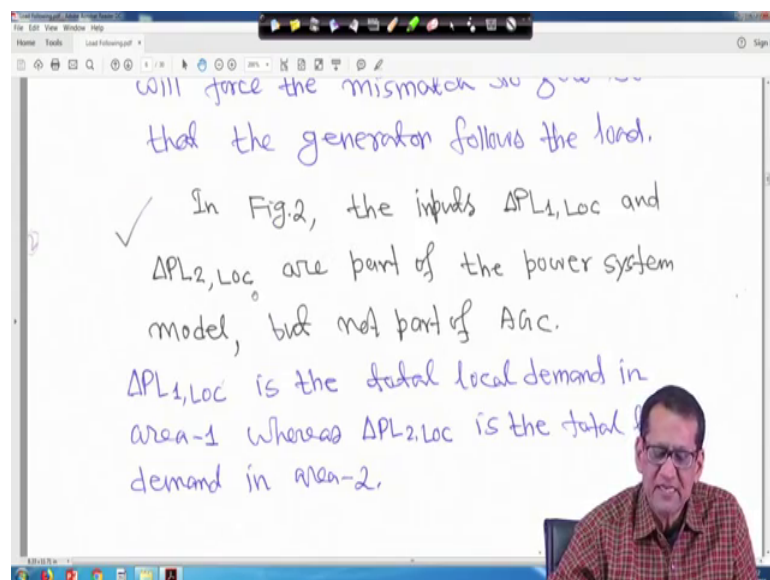 Load Following.pdf - Adobe Acrobat Reader DC
File Edit View Window Help
Home Tools Load Following.pdf × Sign
will force the mismatch
that the generator follows the load.
In Fig.2, the inputs ΔPL1,LOC and
ΔPL2,LOC are part of the power system
model, but not part of AGC.
ΔPL1,LOC is the total local demand in
area-1 whereas ΔPL2,LOC is the total
demand in area-2.